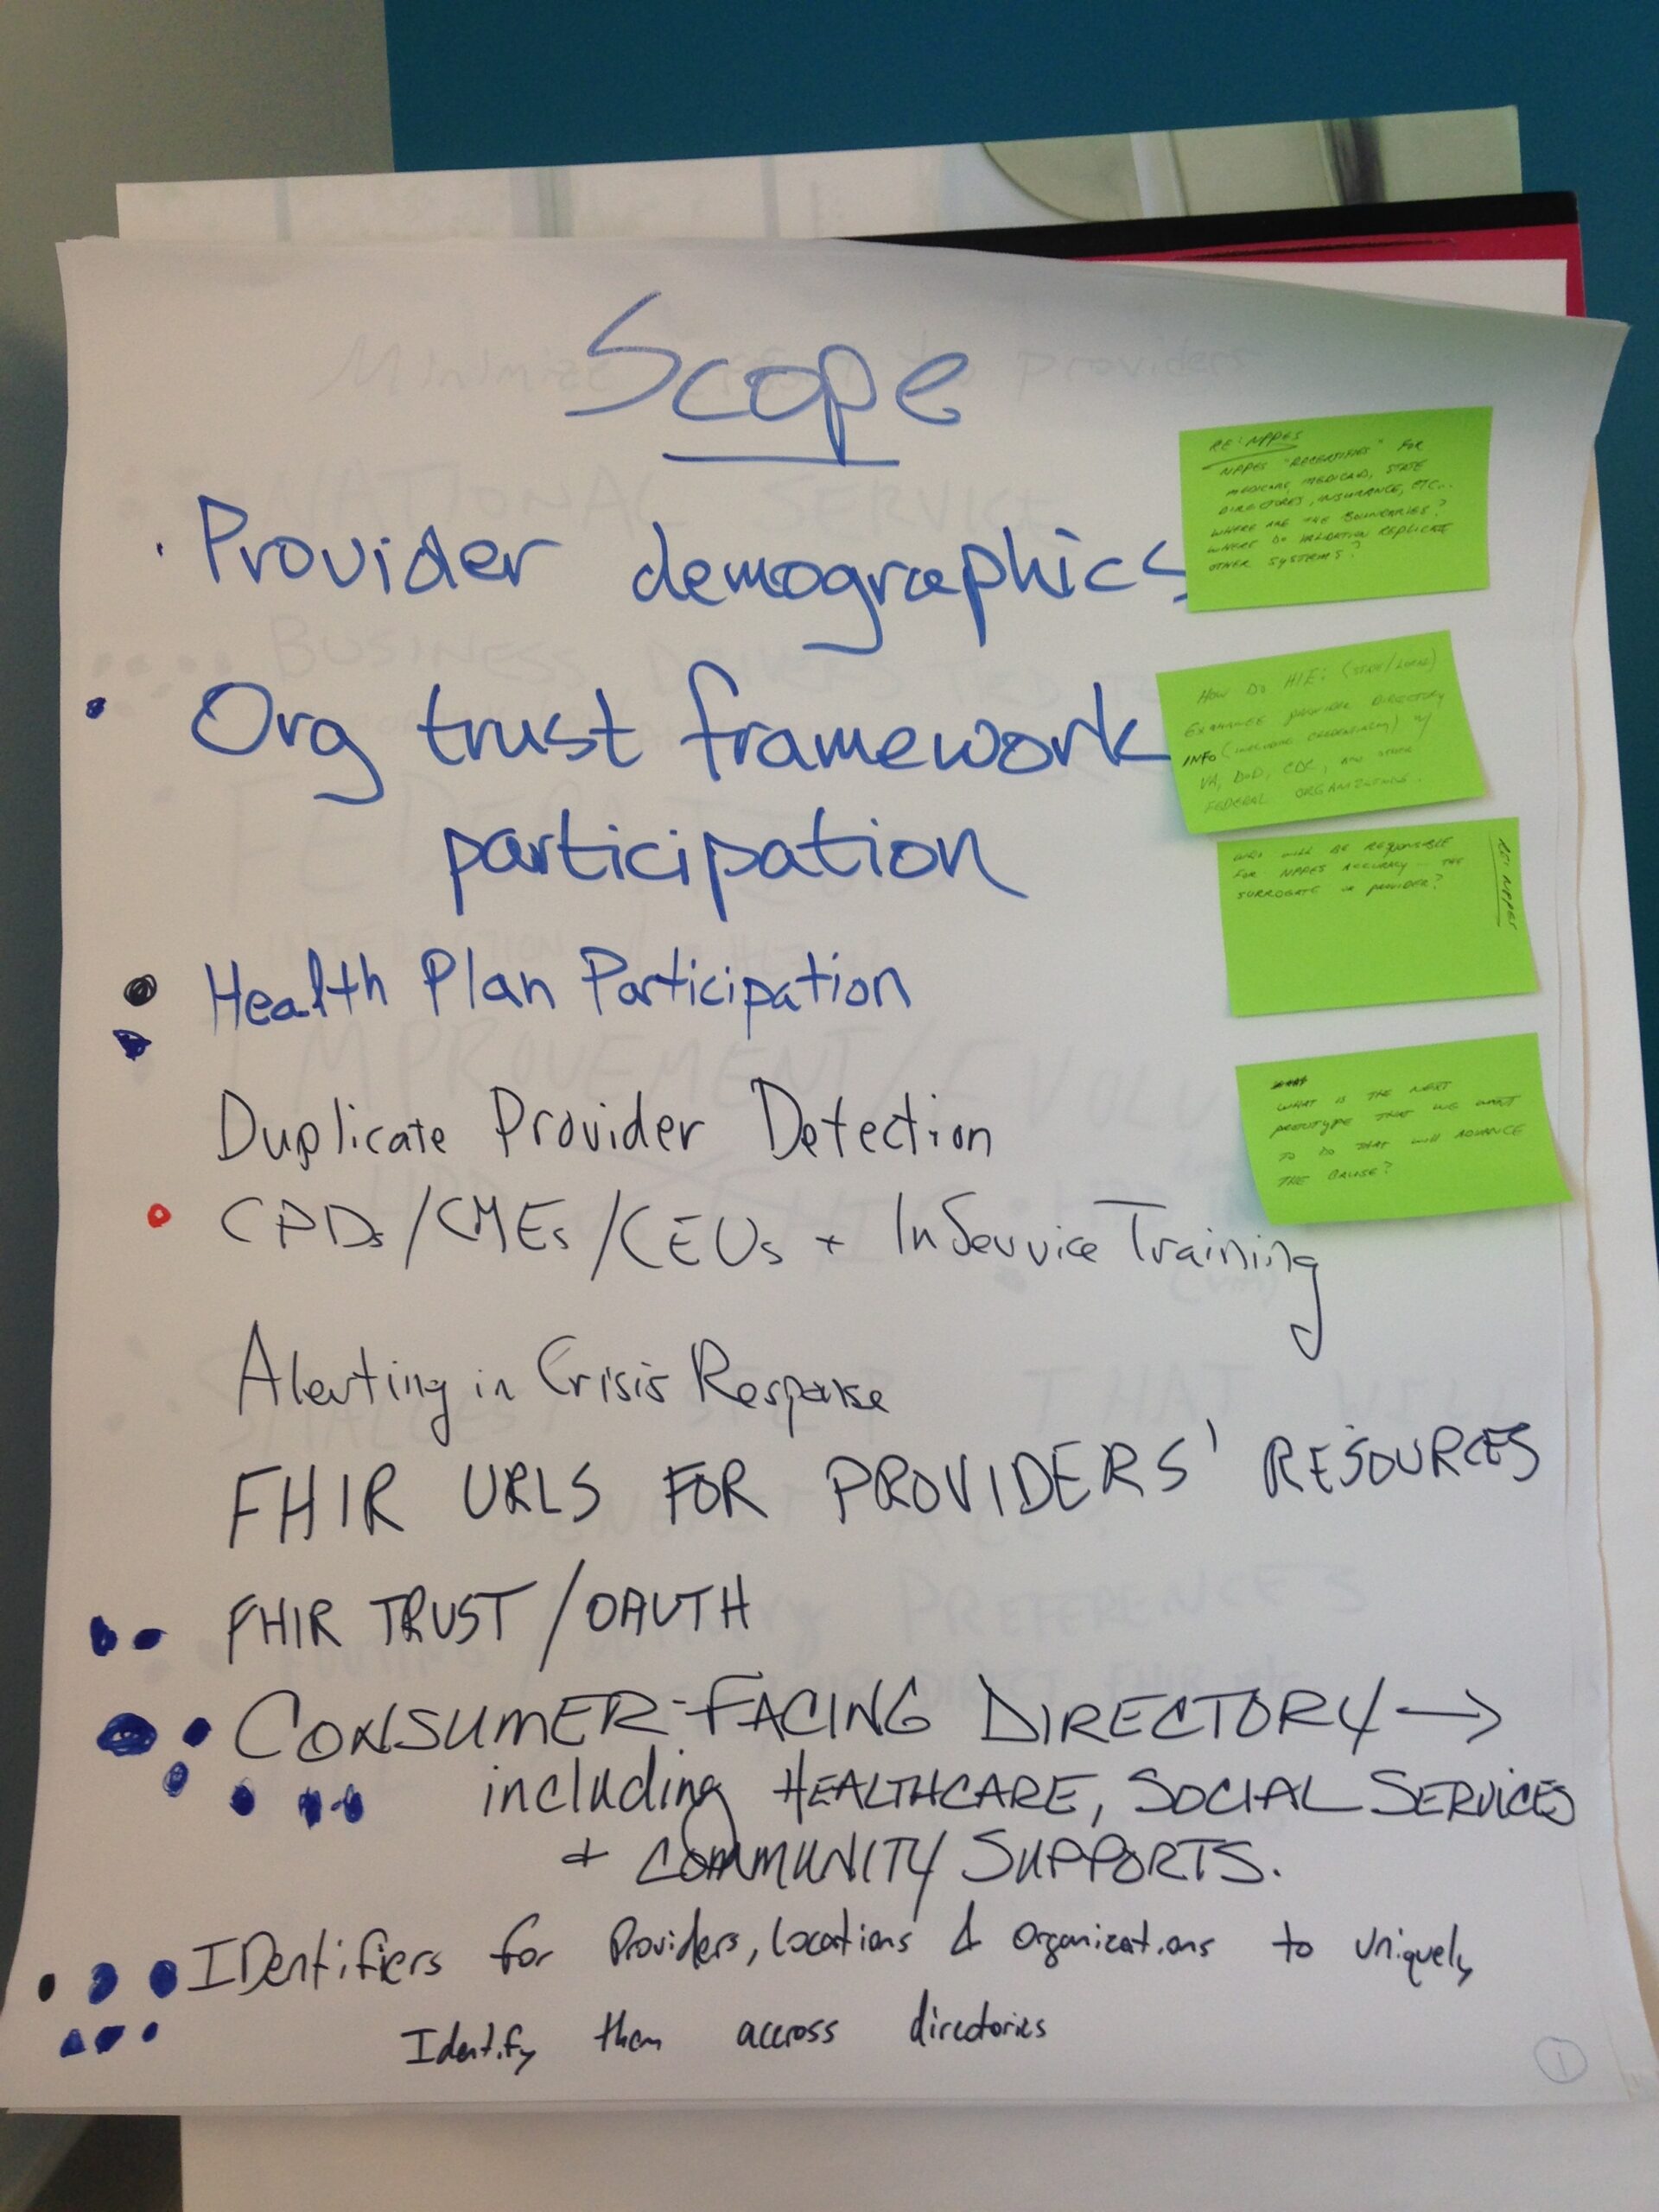 Scope
Provider demographics
RE: NPPES
NPPES "RECERTIFIES" FOR
MEDICARE MEDICAID, STATE
DIRECTORIES, INSURANCE, ETC...
WHERE ARE THE BOUNDARIES?
WHERE DO VALIDATION REPLICATE
OTHER SYSTEMS?
Org trust framework
participation
HOW DO HIE: (STATE/LOCAL)
EXCHANGE PROVIDER DIRECTORY
INFO (INCLUDING CREDENTIALING) W/
VA, DoD, CDC, AND OTHER
FEDERAL ORGANIZATIONS.
RE: NPPES
WHO WILL BE RESPONSIBLE
FOR NPPES ACCURACY... THE
SURROGATE OR PROVIDER?
Health Plan Participation
WHAT IS THE NEXT
PROTOTYPE THAT WE WANT
TO DO THAT WILL ADVANCE
THE CAUSE?
Duplicate Provider Detection
CPDs/CMEs/CEUs + InService Training
Alerting in Crisis Response
FHIR URLS FOR PROVIDERS' RESOURCES
FHIR TRUST/OAUTH
CONSUMER-FACING DIRECTORY →
including HEALTHCARE, SOCIAL SERVICES
+ COMMUNITY SUPPORTS.
IDentifiers for Providers, locations & organizations to uniquely
Identify them accross directories
1